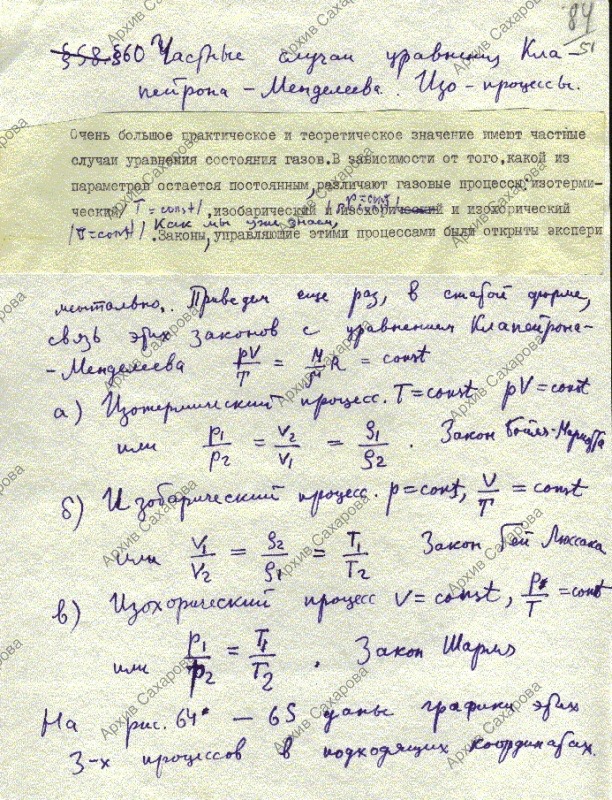 84
51
§58 §60 Частные случаи уравнения Кла-
пейрона - Менделеева. Изо-процессы.
Очень большое практическое и теоретическое значение имеют частные
случаи уравнения состояния газов. В зависимости от того, какой из
параметров остается постоянным, различают газовые процессы: изотерми-
ческий /T = const/, изобарический /p = const/ и изохорический
/V = const/. Как мы уже знаем, Законы, управляющие этими процессами были открыты экспери
ментально. Приведем еще раз, в сжатой форме,
связь этих законов с уравнением Клапейрона-
-Менделеева pV/T = M/μ R = const
а) Изотермический процесс. T = const pV = const
или p₁/p₂ = V₂/V₁ = ρ₁/ρ₂. Закон Бойля-Мариотта
б) Изобарический процесс. p = const, V/T = const
или V₁/V₂ = ρ₂/ρ₁ = T₁/T₂ Закон Гей Люссака
в) Изохорический процесс V = const, p/T = const
или p₁/p₂ = T₁/T₂. Закон Шарля
На рис. 64 - 65 даны графики этих
3-х процессов в подходящих координатах.
Архив Сахарова